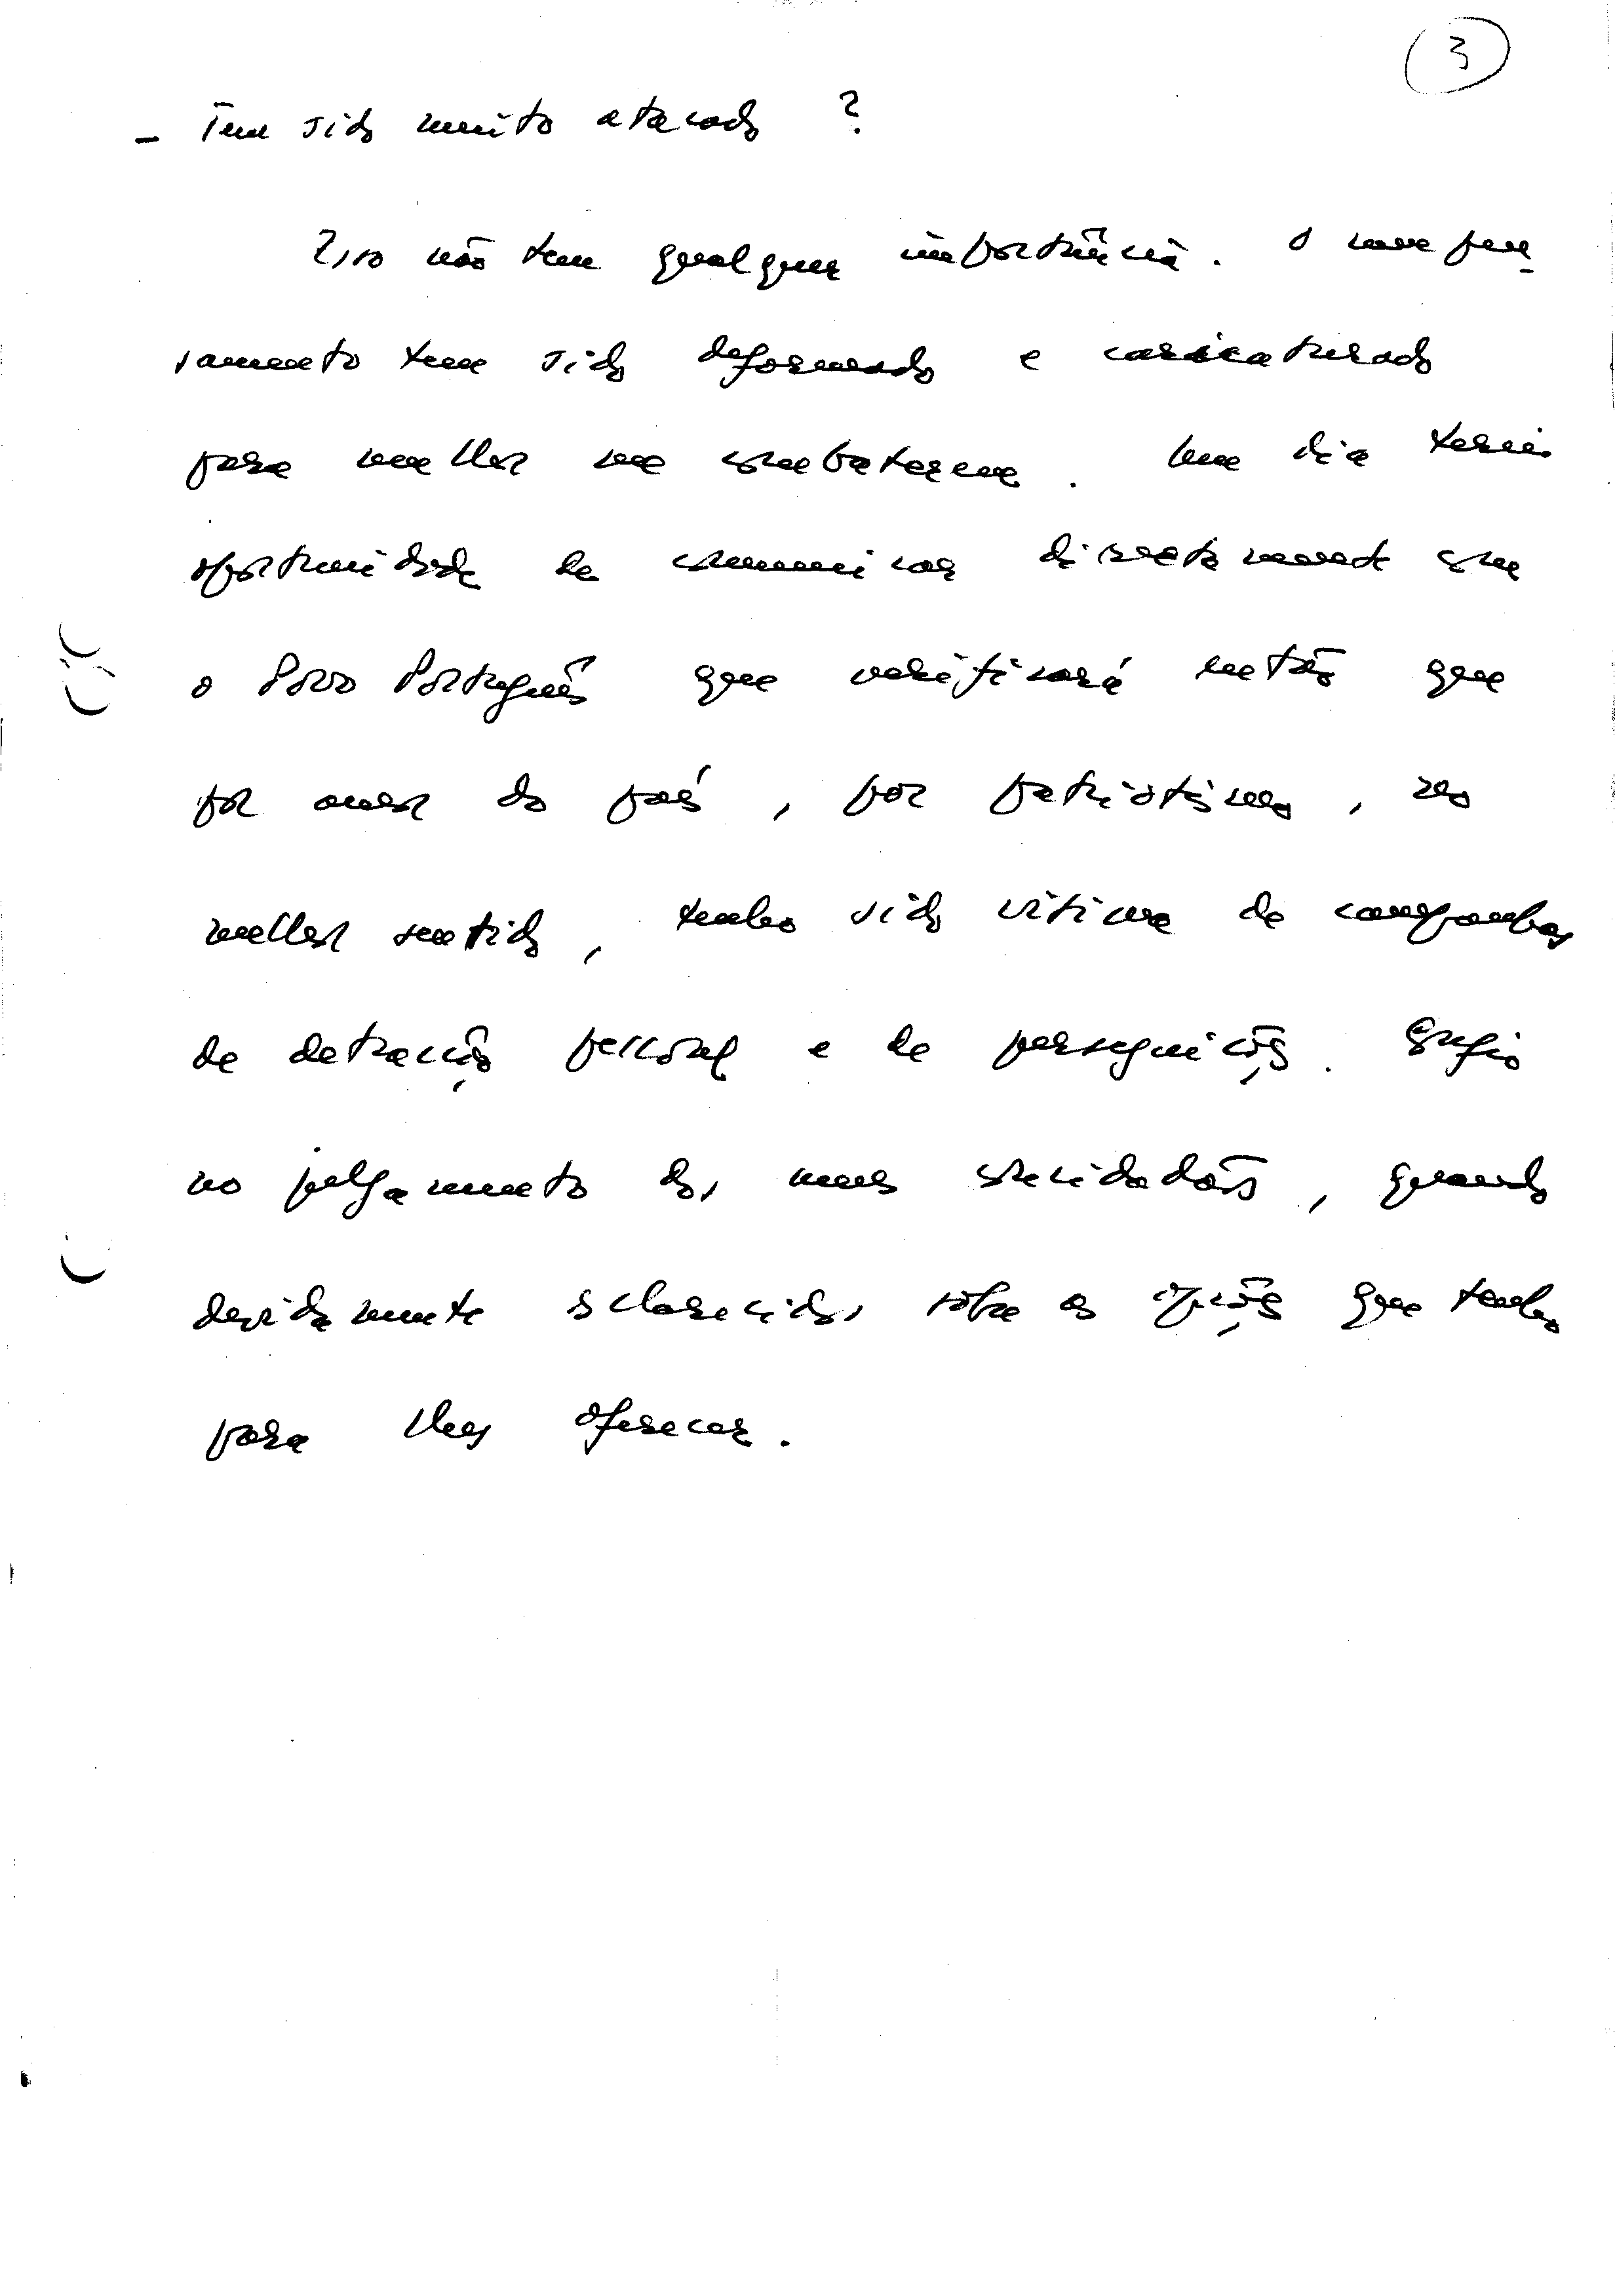 3
- Tem sido muito atacado ?
Isso não tem qualquer importância. O meu pen-
samento tem sido deformado e caricaturado
para melhor me combaterem. Um dia terei
oportunidade de comunicar directamente com
o Povo Português que verificará então que
por amor do país, por patriotismo, no
melhor sentido, tenho sido vítima de campanhas
de detracção pessoal e de perseguições. Confio
no julgamento dos meus concidadãos, quando
devidamente esclarecidos sobre as opções que tenho
para lhes oferecer.